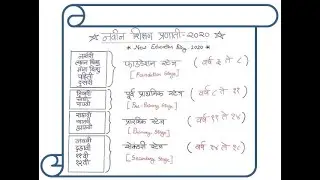 नवीन शिक्षण प्रणाली-२०२०
* New Education Policy 2020 *
नर्सरी
पहिली
दुसरी
फाउंडेशन स्टेज
[Foundation Stage]
( वर्ष ३ ते ८ )
तिसरी
चौथी
पाचवी
पूर्व प्राथमिक स्टेज
( वर्ष ८ ते ११ )
सहावी
सातवी
आठवी
( वर्ष ११ ते १४ )
नववी
दहावी
११वी
१२वी
सेकंडरी स्टेज
[Secondary Stage]
( वर्ष १४ ते १८ )